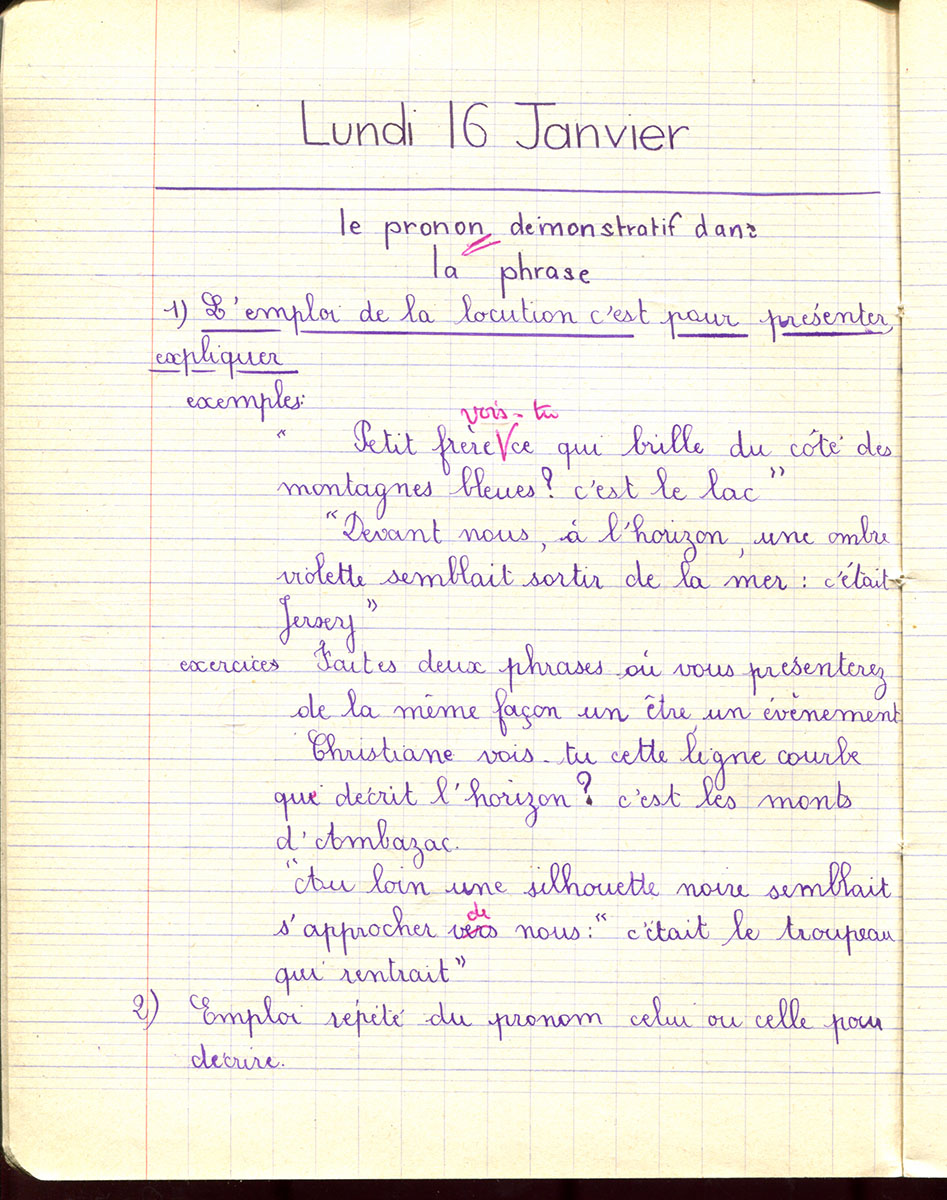 Lundi 16 Janvier
le pronon démonstratif dans
la phrase
1) L'emploi de la locution c'est pour présenter,
expliquer
exemples:
vois-tu
" Petit frère V ce qui brille du côté des
montagnes bleues? c'est le lac"
"Devant nous, à l'horizon, une ombre
violette semblait sortir de la mer: c'était
Jersey"
exercices Faites deux phrases où vous présenterez
de la même façon un être, un évènement
Christiane vois-tu cette ligne courbe
que décrit l'horizon? c'est les monts
d'Ambazac.
"Au loin une silhouette noire semblait
de
s'approcher vers nous:" c'était le troupeau
qui rentrait"
2) Emploi répété du pronom celui ou celle pour
décrire.